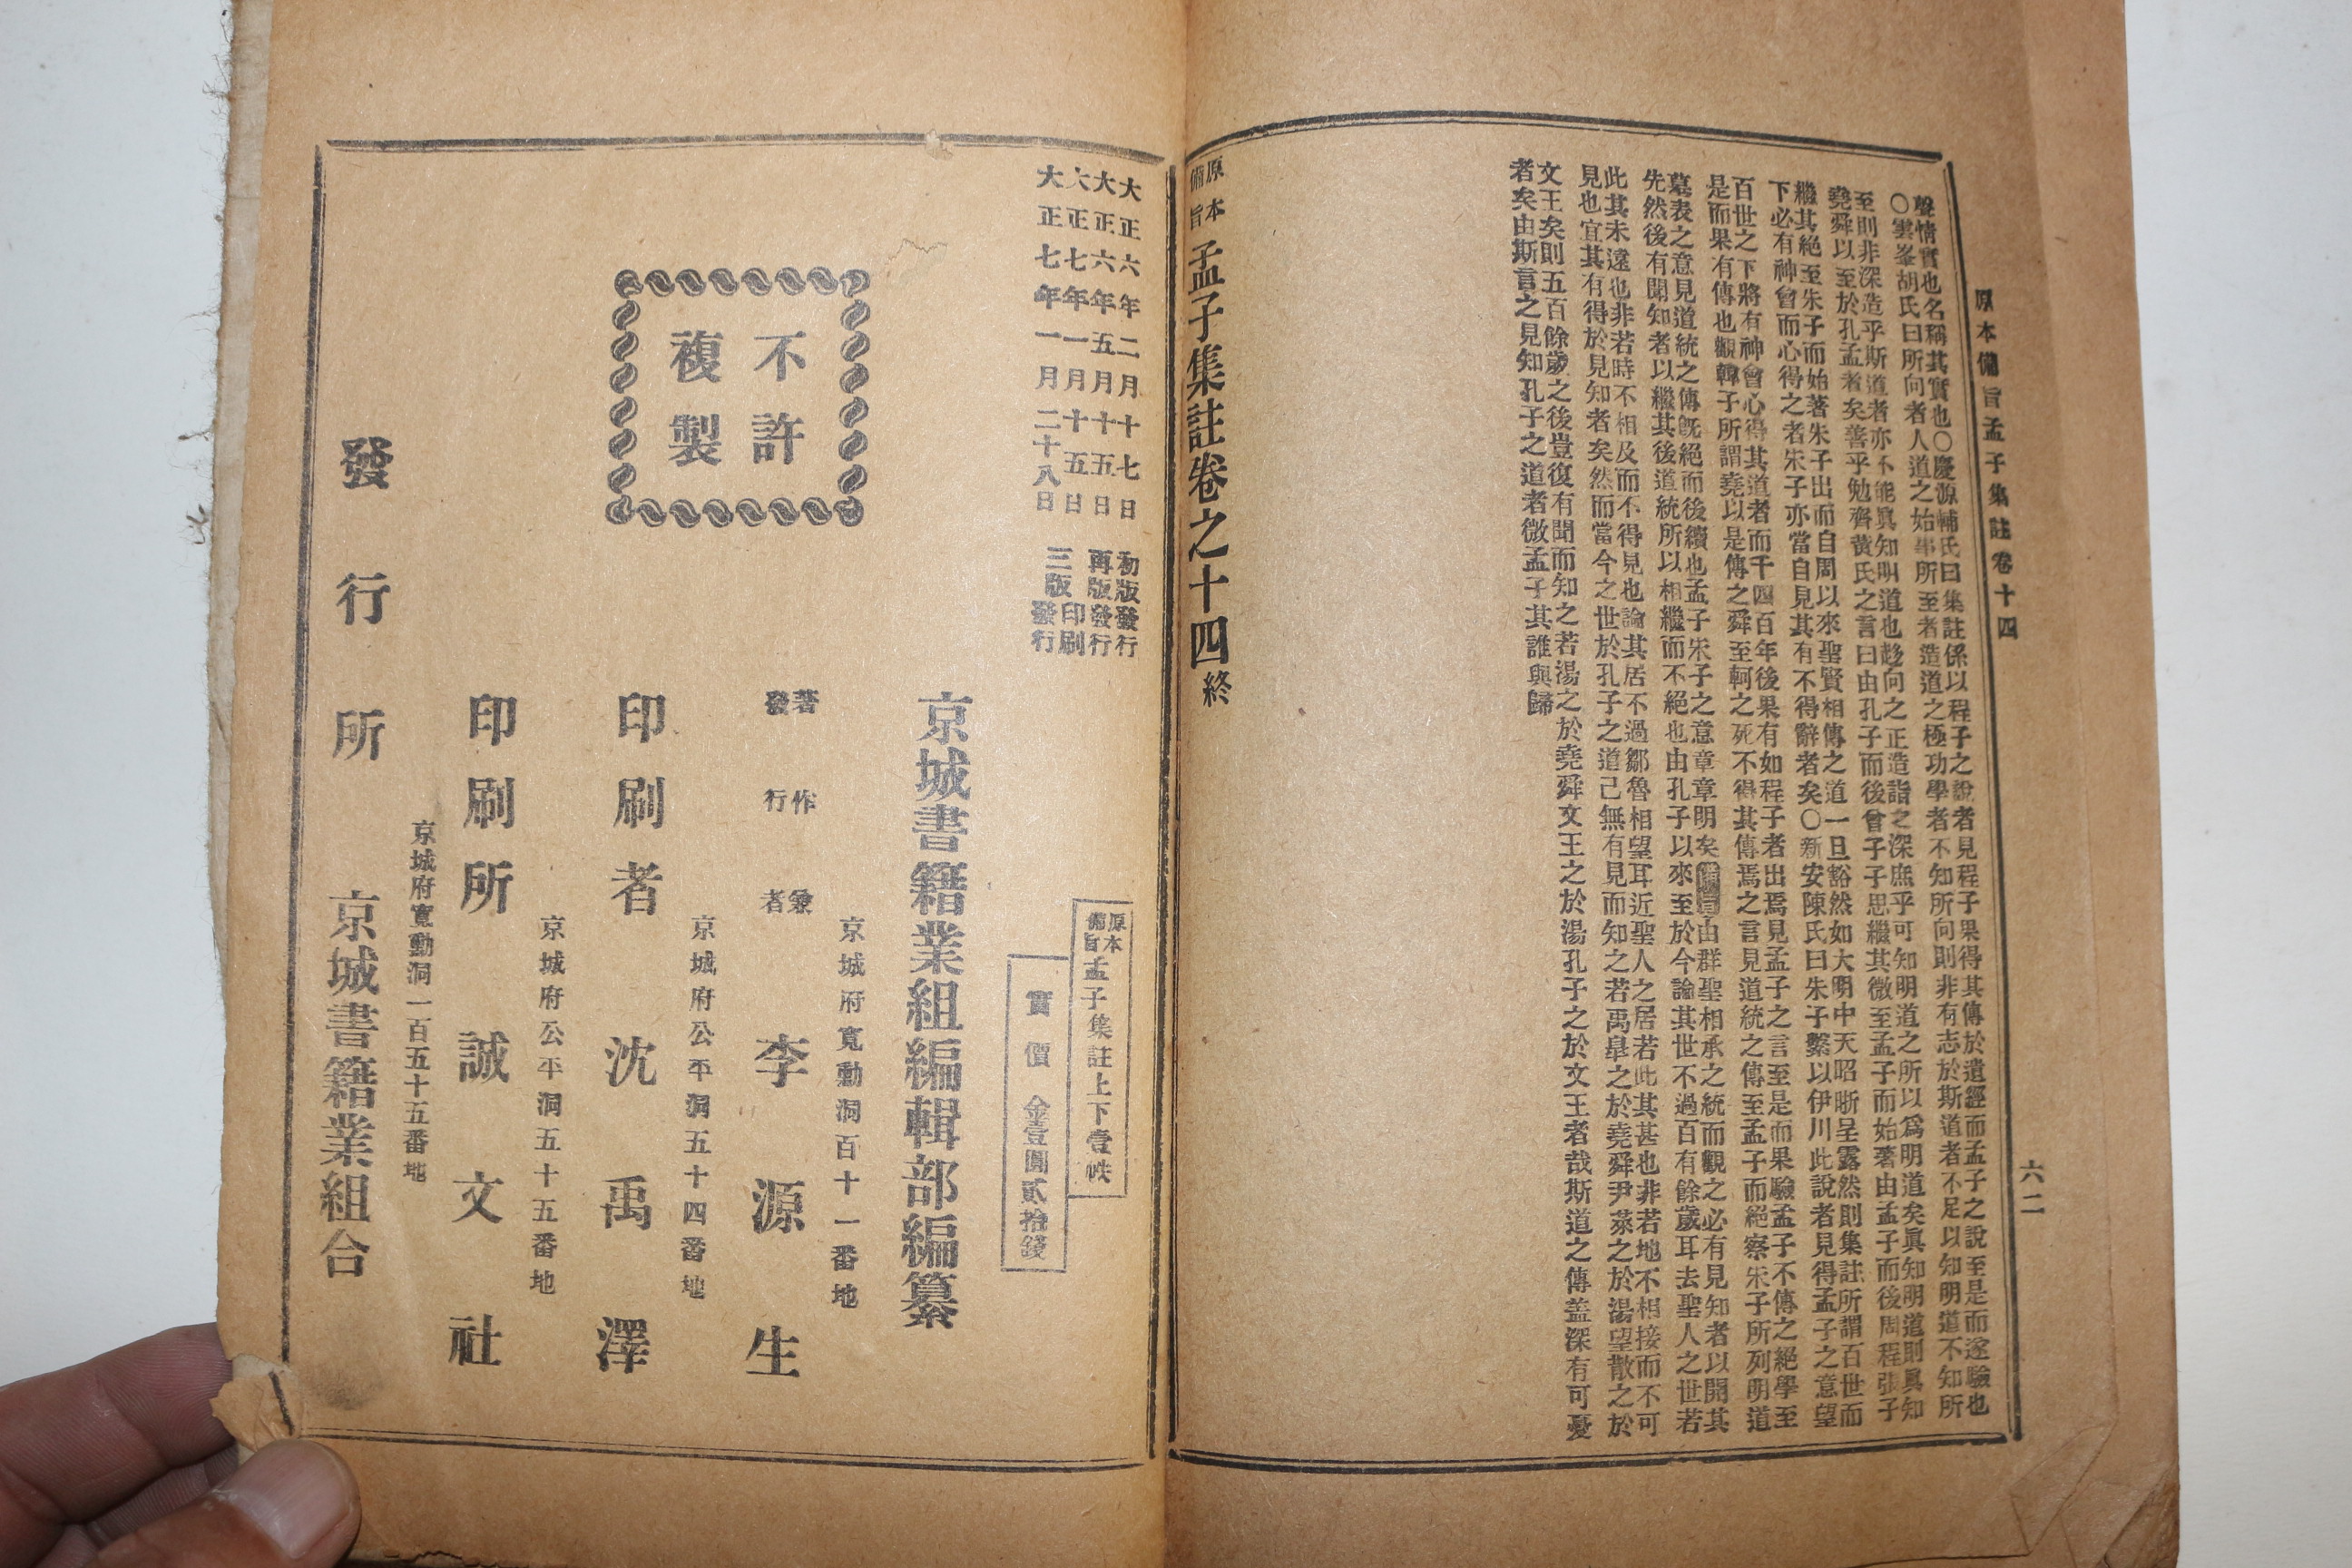 原本備旨孟子集註卷十四
六二
聲情實也名稱其實也〇慶源輔氏曰集註係以程子之說者見程子果得其傳於遺經而孟子之說至是而遂驗也
〇雲峯胡氏曰所向者人道之始事所至者造道之極功學者不知所向則非有志於斯道者不足以知明道不知所
至則非深造乎斯道者亦不能眞知明道也趍向之正造詣之深庶乎可知明道之所以爲明道矣眞知明道則眞知
堯舜以至於孔孟者矣善乎勉齊黃氏之言曰由孔子而後曾子子思繼其微至孟子而始著由孟子而後周程張子
繼其絕至朱子而始著朱子出而自周以來聖賢相傳之道一旦豁然如大明中天昭晰呈露然則集註所謂百世而
下必有神會而心得之者朱子亦當自見其有不得辭者矣〇新安陳氏曰朱子繫以伊川此說者見得孟子之意望
百世之下將有神會心得其道者而千四百年後果有如程子者出焉見孟子之言至是而果驗孟子不傳之絕學至
是而果有傳也觀韓子所謂堯以是傳之舜至軻之死不得其傳焉之言見道統之傳至孟子而絕察朱子所列明道
墓表之意見道統之傳旣絕而後續也孟子朱子之意章章明矣備旨由群聖相承之統而觀之必有見知者以開其
先然後有聞知者以繼其後道統所以相繼而不絕也由孔子以來至於今論其世不過百有餘歲耳去聖人之世若
此其未遠也非若時不相及而不得見也論其居不過鄒魯相望耳近聖人之居若此其甚也非若地不相接而不可
見也宜其有得於見知者矣然而當今之世於孔子之道己無有見而知之若禹皐之於堯舜尹萊之於湯望散之於
文王矣則五百餘歲之後豈復有聞而知之若湯之於堯舜文王之於湯孔子之於文王者哉斯道之傳盖深有可憂
者矣由斯言之見知孔子之道者微孟子其誰與歸
原本備旨孟子集註卷之十四終
大正六年二月十七日 初版發行
大正六年五月十五日 再版發行
大正七年一月十五日 三版印刷
大正七年一月二十八日 三版發行
不許
複製
原本備旨孟子集註上下壹帙
實價 金壹圓貳拾錢
京城書籍業組編輯部編纂
京城府寬勳洞百十一番地
著作兼
發行者 李源生
京城府公平洞五十四番地
印刷者 沈禹澤
京城府公平洞五十五番地
印刷所 誠文社
京城府寬勳洞一百五十五番地
發行所 京城書籍業組合